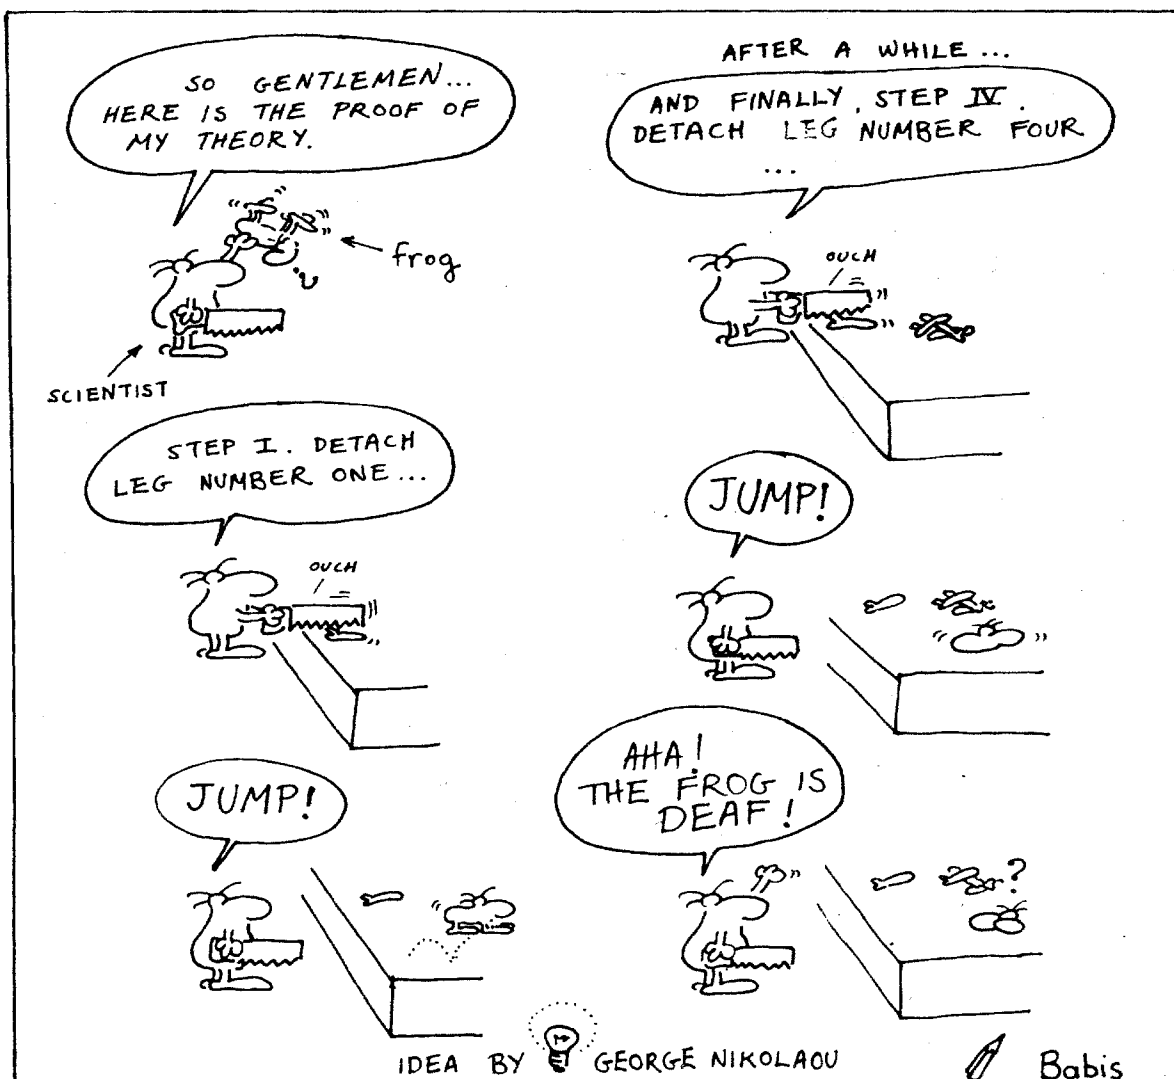 SO GENTLEMEN...
HERE IS THE PROOF OF
MY THEORY.
frog
SCIENTIST
STEP I. DETACH
LEG NUMBER ONE...
OUCH
JUMP!
AFTER A WHILE...
AND FINALLY, STEP IV.
DETACH LEG NUMBER FOUR
...
OUCH
JUMP!
AHA!
THE FROG IS
DEAF!
?
IDEA BY GEORGE NIKOLAOU
Babis